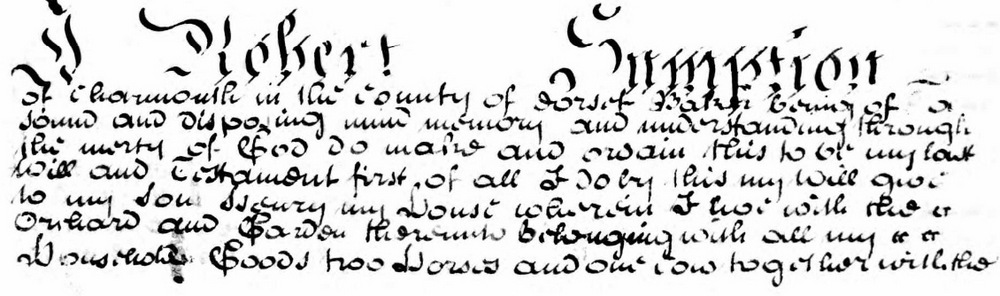 I Robert Sumption
of Charmouth in the County of Dorset Baker being of a
sound and disposing mind memory and understanding through
the mercy of God do make and ordain this to be my last
Will and Testament first of all I do by this my Will give
to my Son Henry my House wherein I live with the
Orchard and Garden thereunto belonging with all my
Household Goods two Horses and one Cow together with the